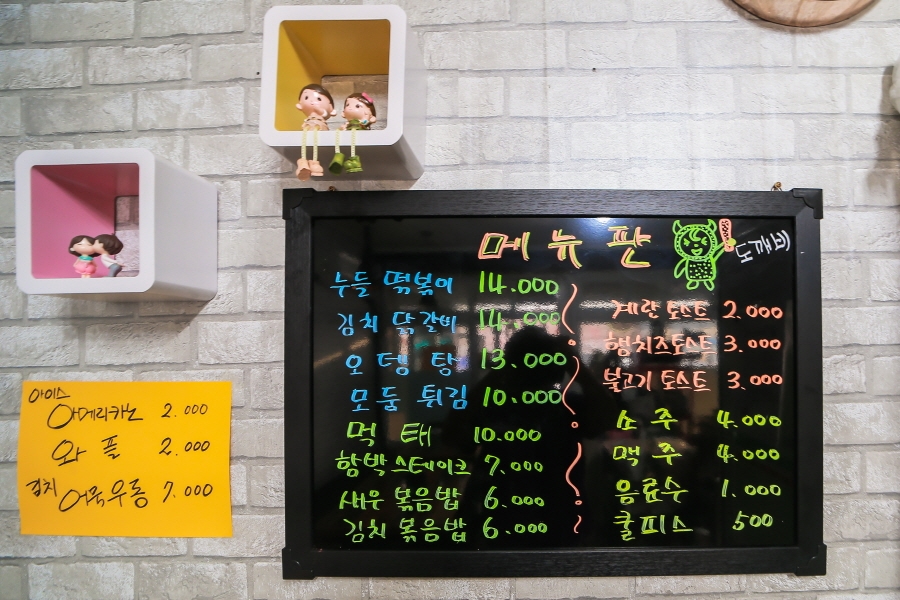 메뉴판
누들 떡볶이 14.000
김치 닭갈비 14.000
오뎅탕 13.000
모둠 튀김 10.000
먹태 10.000
함박스테이크 7.000
새우 볶음밥 6.000
김치 볶음밥 6.000
계란토스트 2.000
햄치즈토스트 3.000
불고기 토스트 3.000
소주 4.000
맥주 4.000
음료수 1.000
쿨피스 500
아이스
아메리카노 2.000
와플 2.000
김치 어묵우동 7.000